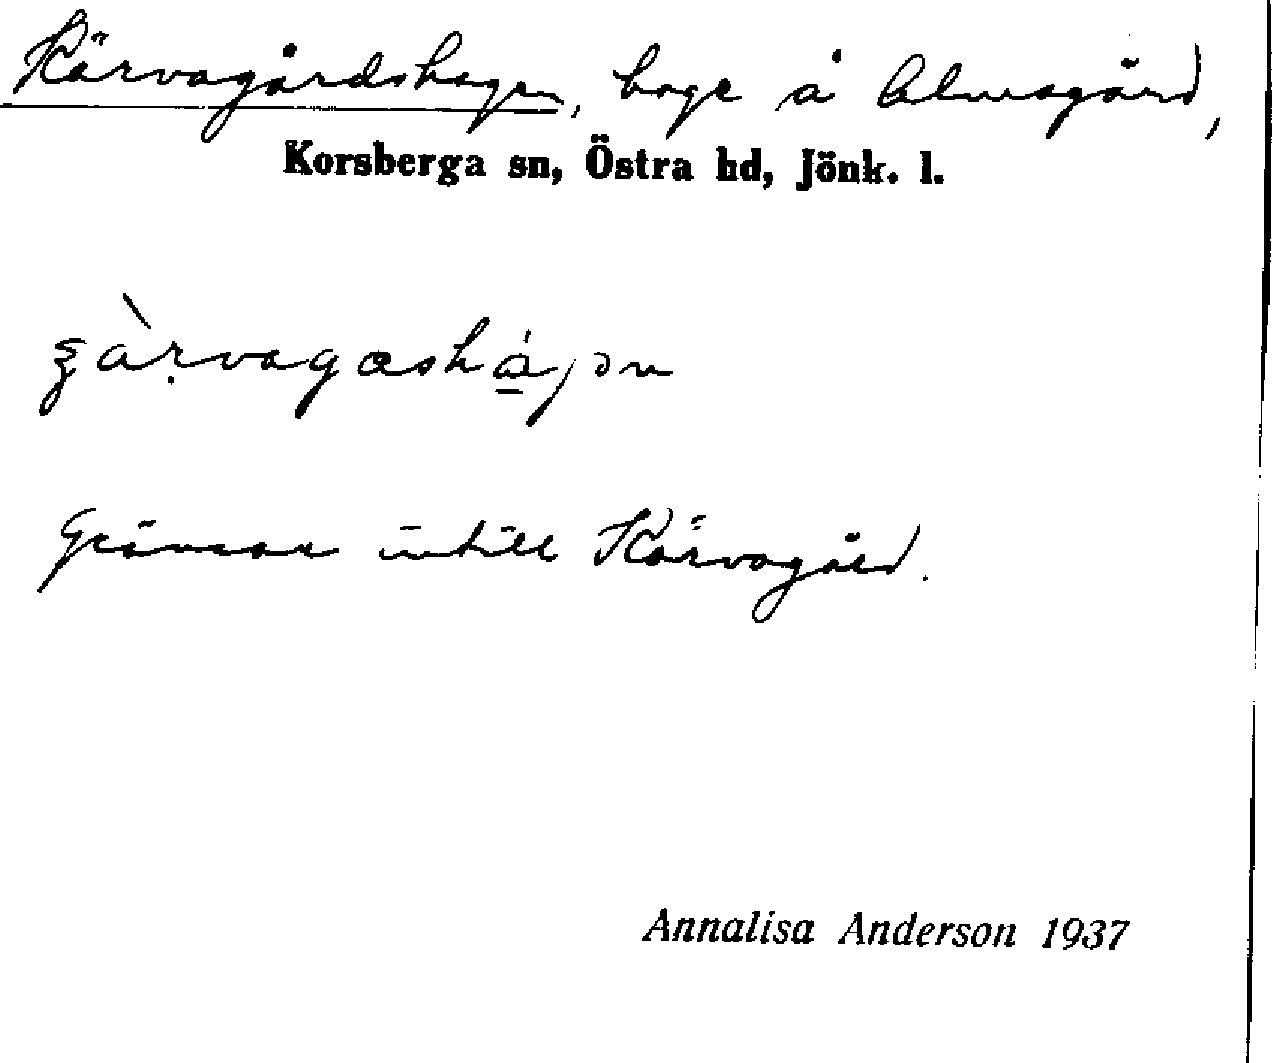 Kärvagårdshagen, hage å Almsgård,
Korsberga sn, Östra hd, Jönk. l.
Gränsar intill Kärvagård.
Annalisa Anderson 1937